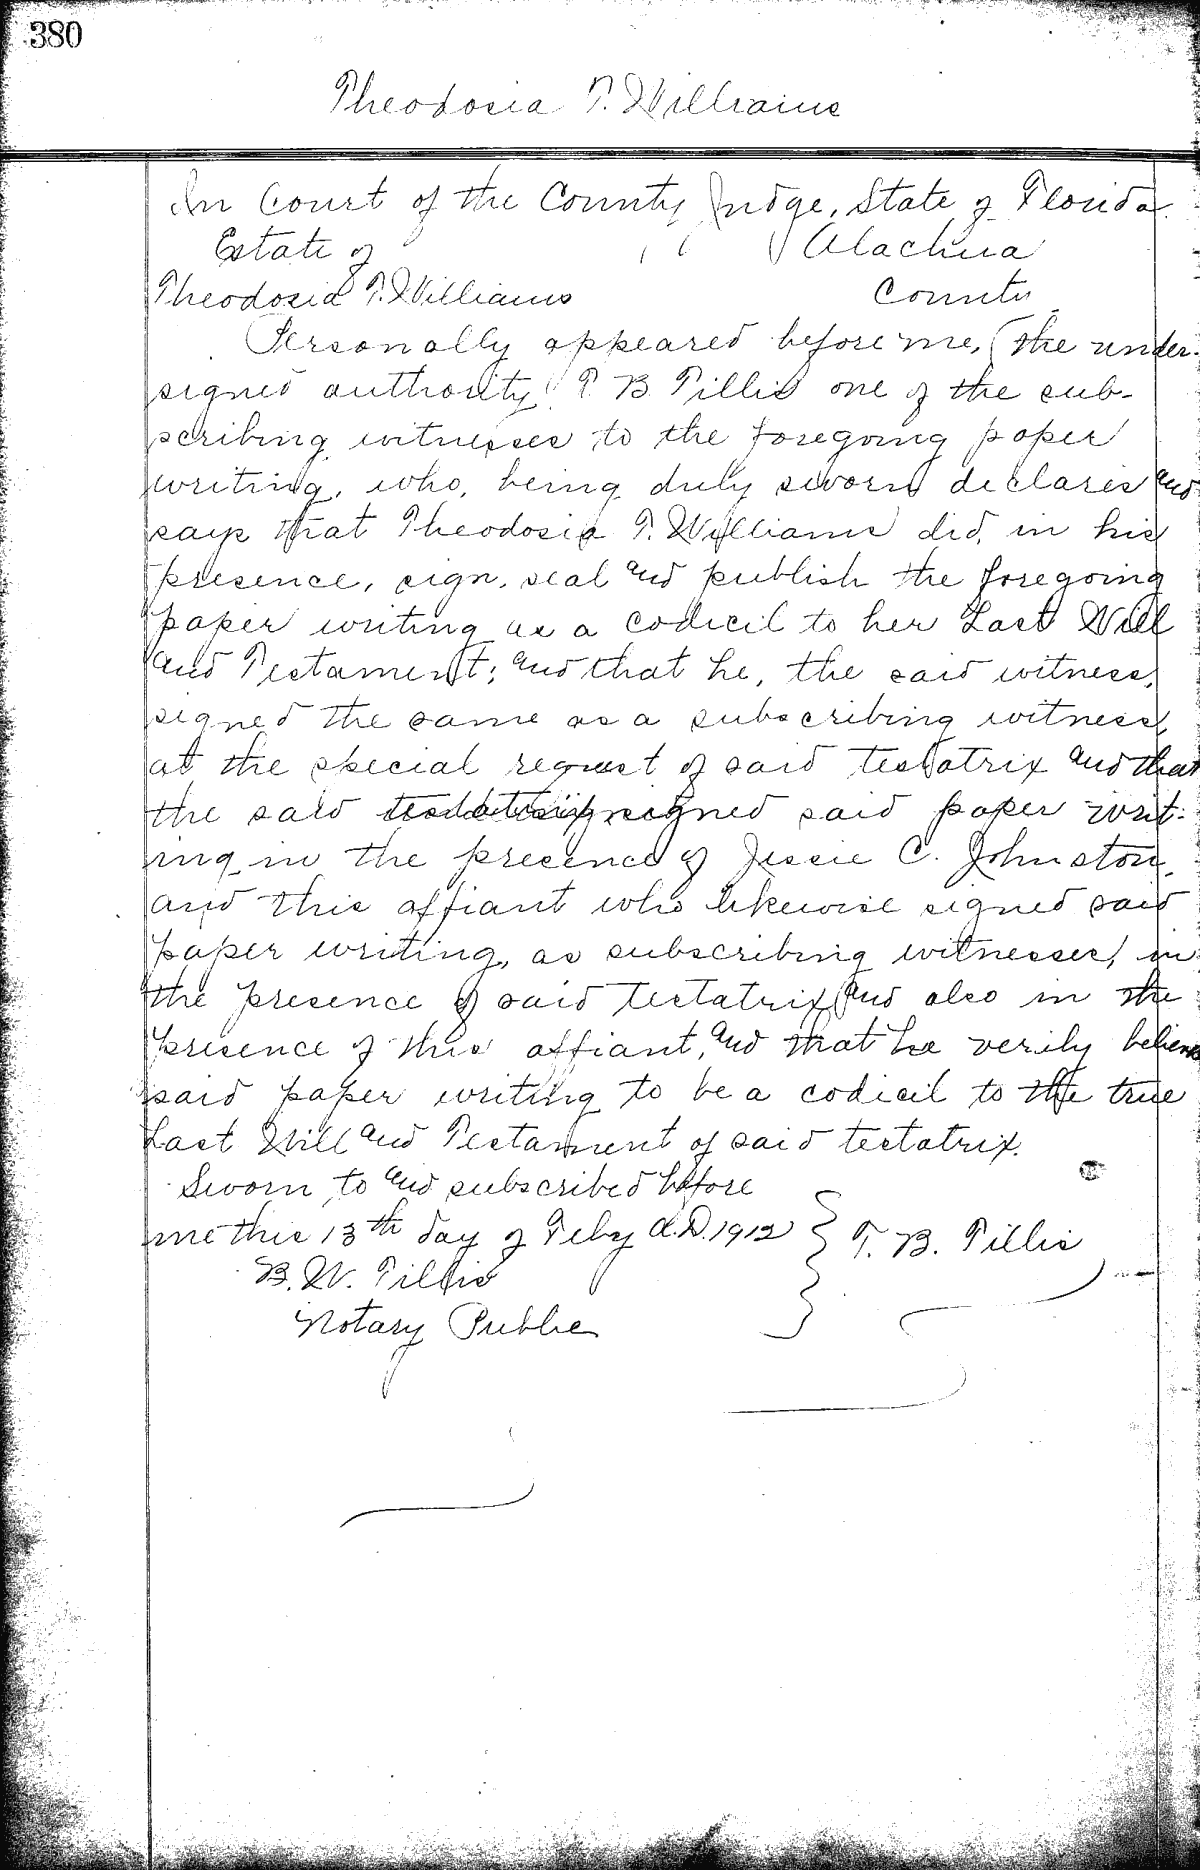 380
Theodosia T. Williams
In Court of the County Judge, State of Florida
Estate of
Alachua
Theodosia T. Williams
County
Personally appeared before me, (the under-
signed authority) T. B. Tillis one of the sub-
scribing witnesses to the foregoing paper
writing, who, being duly sworn declares and
says that Theodosia T. Williams did, in his
presence, sign, seal and publish the foregoing
paper writing as a codicil to her Last Will
and Testament; and that he, the said witness,
signed the same as a subscribing witness,
at the special request of said testatrix and that
the said signed said paper writ-
ing in the presence of Jessie C. Johnston,
and this affiant who likewise signed said
paper writing, as subscribing witnesses, in
the presence of said testatrix and also in the
presence of this affiant, and that he verily believes
said paper writing to be a codicil to the true
Last Will and Testament of said testatrix.
Sworn to and subscribed before
me this 13th day of Feby A.D. 1912 } T. B. Tillis
B. W. Tillis
Notary Public